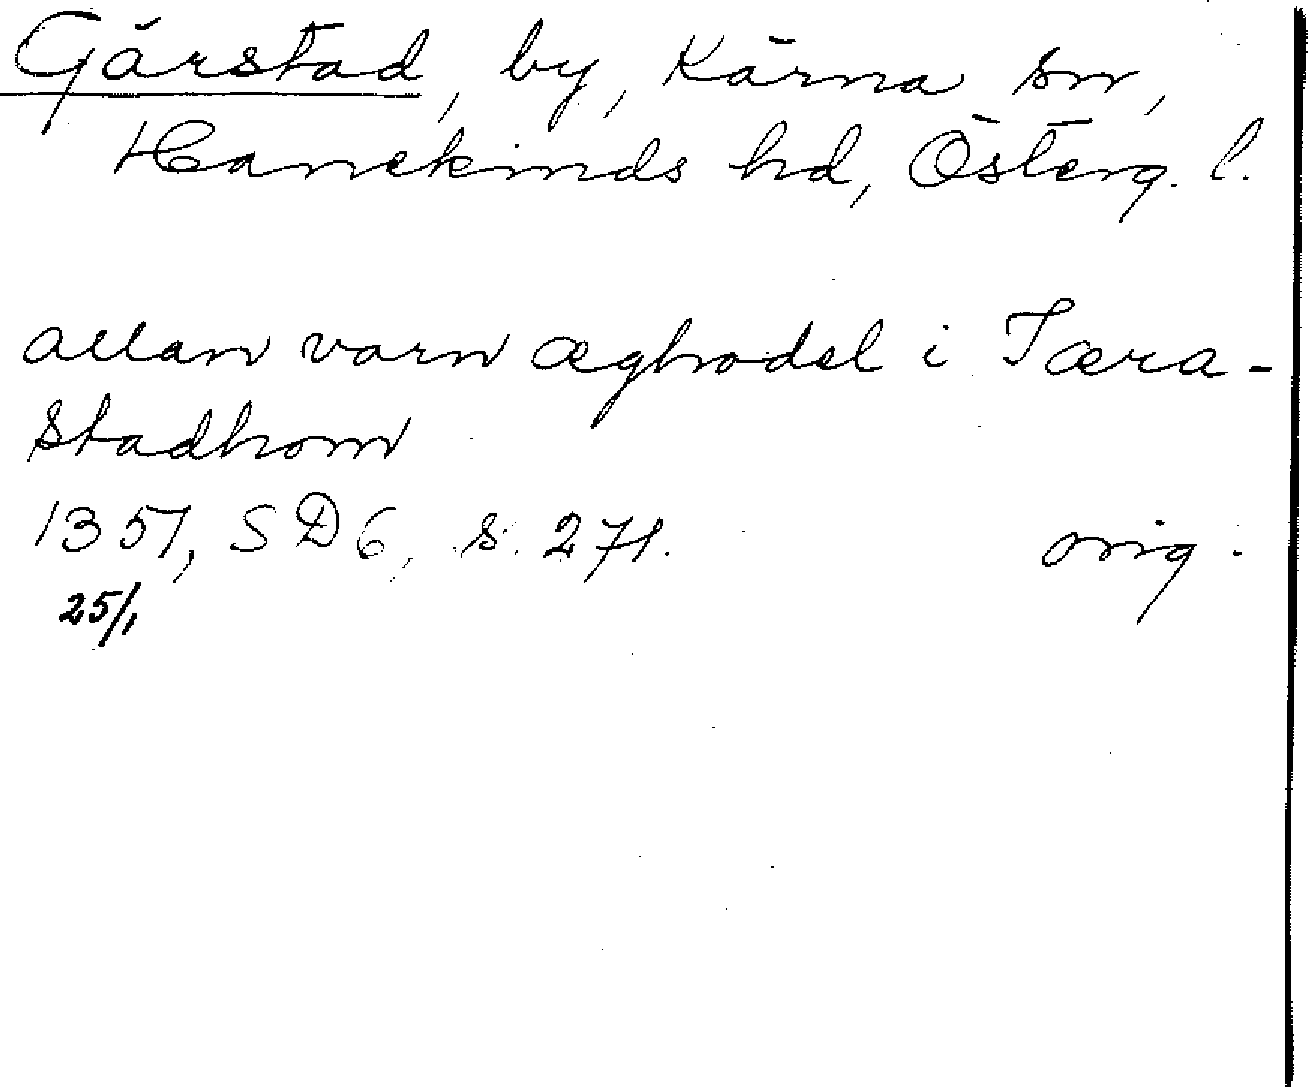 Gärstad, by, Kärna sn,
Hanekinds hd, Österg. l.
allan varn æghodel i Iæra-
stadhom
1351, SD6, s. 271. orig.
25/1